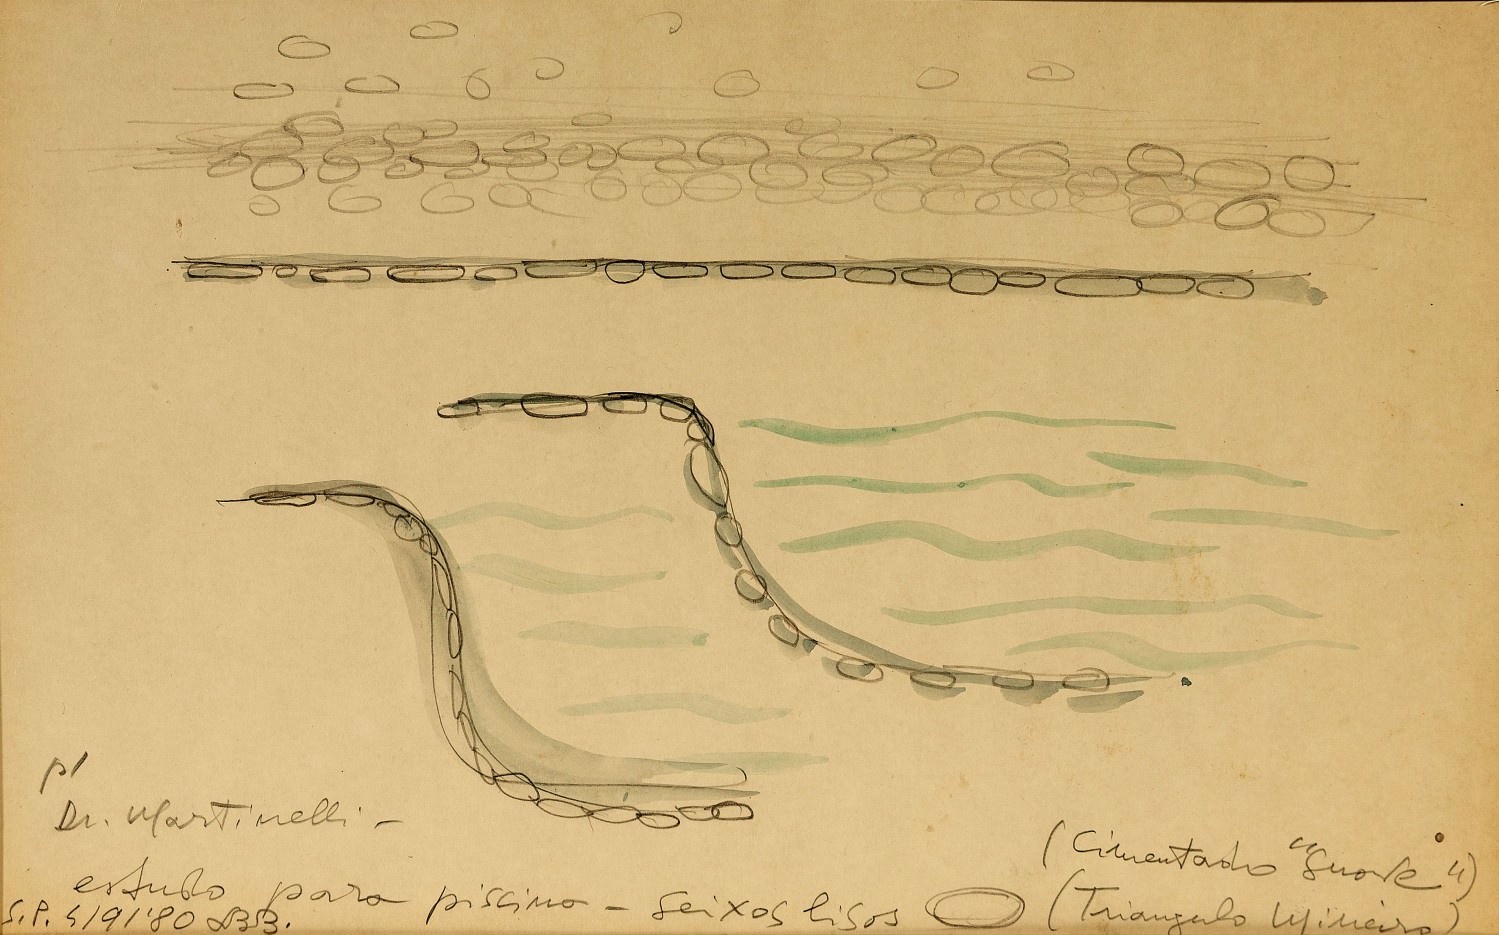 p/
Dr. Martinelli -
(Cimentado "Snock")
estudo para piscina - seixos lisos (Triangulo Mineiro)
S.P. 4/9/'80 LBB.